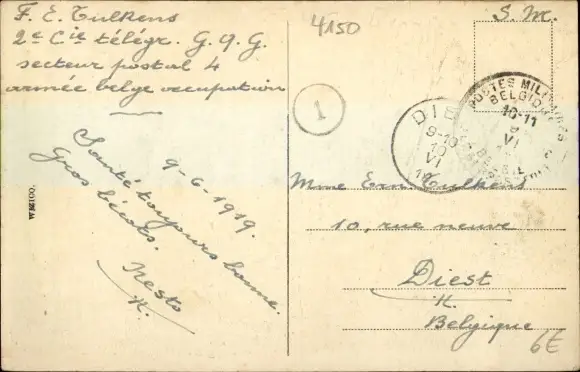 F. E. Tulkens
2e Cie télégr. G. Q. G.
secteur postal 4
armée belge occupation
9-6-1919.
Santé toujours bonne.
Gros bécots.
Nesto
K.
W.M.
4150
1
S. M.
POSTES MILITAIRES
BELGIQUE
10-11
9
VI
DIE
9-10
10
VI
19
Mme Ern. Tulkens
10, rue neuve
Diest
K.
Belgique
6E